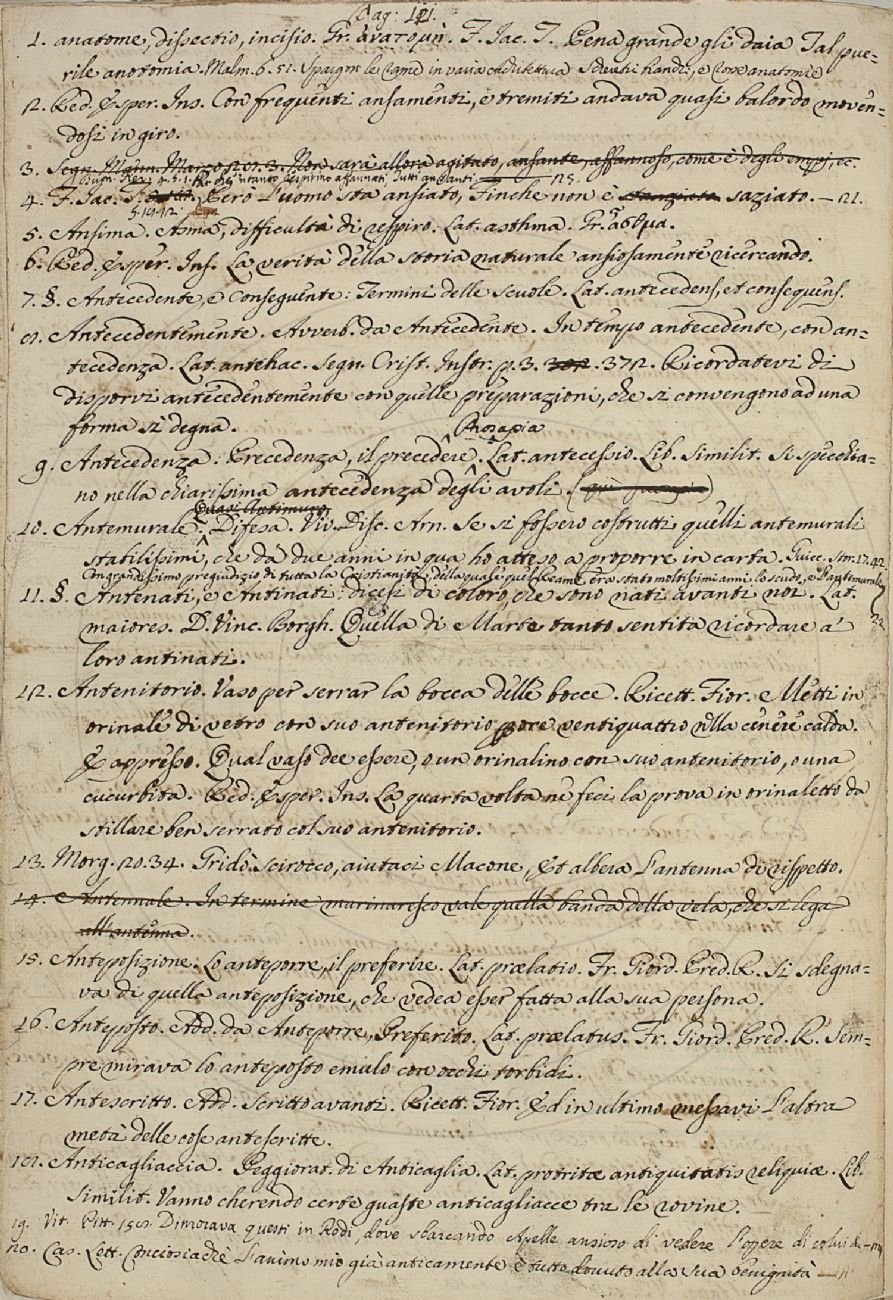 Pag: 111.
1. anatome, dissectio, incisio. Gr. ἀνατομὴ. F. Jac. T. Pena grande gli daia Tal pue-
rile anotomia. Malm. 6. 51. in varia Architettura e anatomie
2. Red. Esper. Ins. Con frequenti ansamenti, e tremiti andava quasi balordo moven-
dosi in giro.
3. Segn. Mann. Marzo 20. 3. Non sarà allora agitato, ansante, affannoso, come è degli empj, ec.
affannati, Tutti ansanti.
4. F. Jac. T. Però l'uomo sta ansiato, Finche non è saziato. — 21.
5. 10. 12.
5. Ansima. Asma, difficultà di respiro. Lat. asthma. Gr. ἆσθμα.
6. Red. Esper. Ins. La verità della storia naturale ansiosamente ricercando.
7. §. Antecedente, e Conseguente: Termini delle scuole. Lat. antecedens, et consequens.
8. Antecedentemente. Avverb. da Antecedente. In tempo antecedente, con an-
tecedenza. Lat. antehac. Segn. Crist. Instr. p. 3. 372. Ricordatevi di
disporvi antecedentemente con quelle preparazioni, che si convengono ad una
forma sì degna.
Prosapia
9. Antecedenza: Precedenza, il precedere. Lat. antecessio. Lib. Similit. Si specchia-
no nella chiarissima antecedenza degli avoli.
Quasi Antimuro
10. Antemurale: Difesa. Viv. Disc. Arn. Se si fossero costrutti quelli antemurali
stabilissimi, che da due anni in qua ho atteso a proporre in carta. Guicc. Stor. 17. 42.
Con grandissimo pregiudizio di tutta la Cristianità, della quale quel Reame era stato moltissimi anni lo scudo, e l'antemurale
11. §. Antenati, e Antinati: dicesi di coloro, che sono nati avanti noi. Lat.
maiores. D. Vinc. Borgh. Quella di Marte tanto sentita ricordare a'
loro antinati.
22
12. Antenitorio. Vaso per serrar la bocca delle bocce. Ricett. Fior. Metti in
orinale di vetro con suo antenitorio per ore ventiquattro nella cenere calda.
E appresso. Qual vaso dee essere, o un orinalino con suo antenitorio, o una
cucurbita. Red. Esper. Ins. La quarta volta ne feci la prova in orinaletto da
stillare ben serrato col suo antenitorio.
13. Morg. 20. 34. Gridò Scirocco, aiutaci Macone, Et albera l'antenna di rispetto.
14. Antennale. In termine marinaresco vale quella banda della vela, che si lega
all'antenna.
15. Anteposizione. Lo anteporre, il preferire. Lat. prælatio. Fr. Giord. Pred. R. Si sdegna-
va di quella anteposizione, che vedea esser fatta alla sua persona.
16. Anteposto. Add. da Anteporre, Preferito. Lat. prælatus. Fr. Giord. Pred. R. Sem-
pre mirava lo anteposto emulo con occhi torbidi.
17. Antescritto. Add. Scritto avanti. Ricett. Fior. Ed in ultimo messavi l'altra
metà delle cose antescritte.
18. Anticagliaccia. Peggiorat. di Anticaglia. Lat. protritæ antiquitatis reliquiæ. Lib.
Similit. Vanno cherendo certe guaste anticagliacce tra le rovine.
19. Vit. Pitt. 158. Dimorava questi in Rodi, dove sbarcando Apelle ansioso di vedere l'opere di colui
20. Cas. Lett. Conciosiachè l'animo mio già anticamente è tutto dovuto alla sua benignità